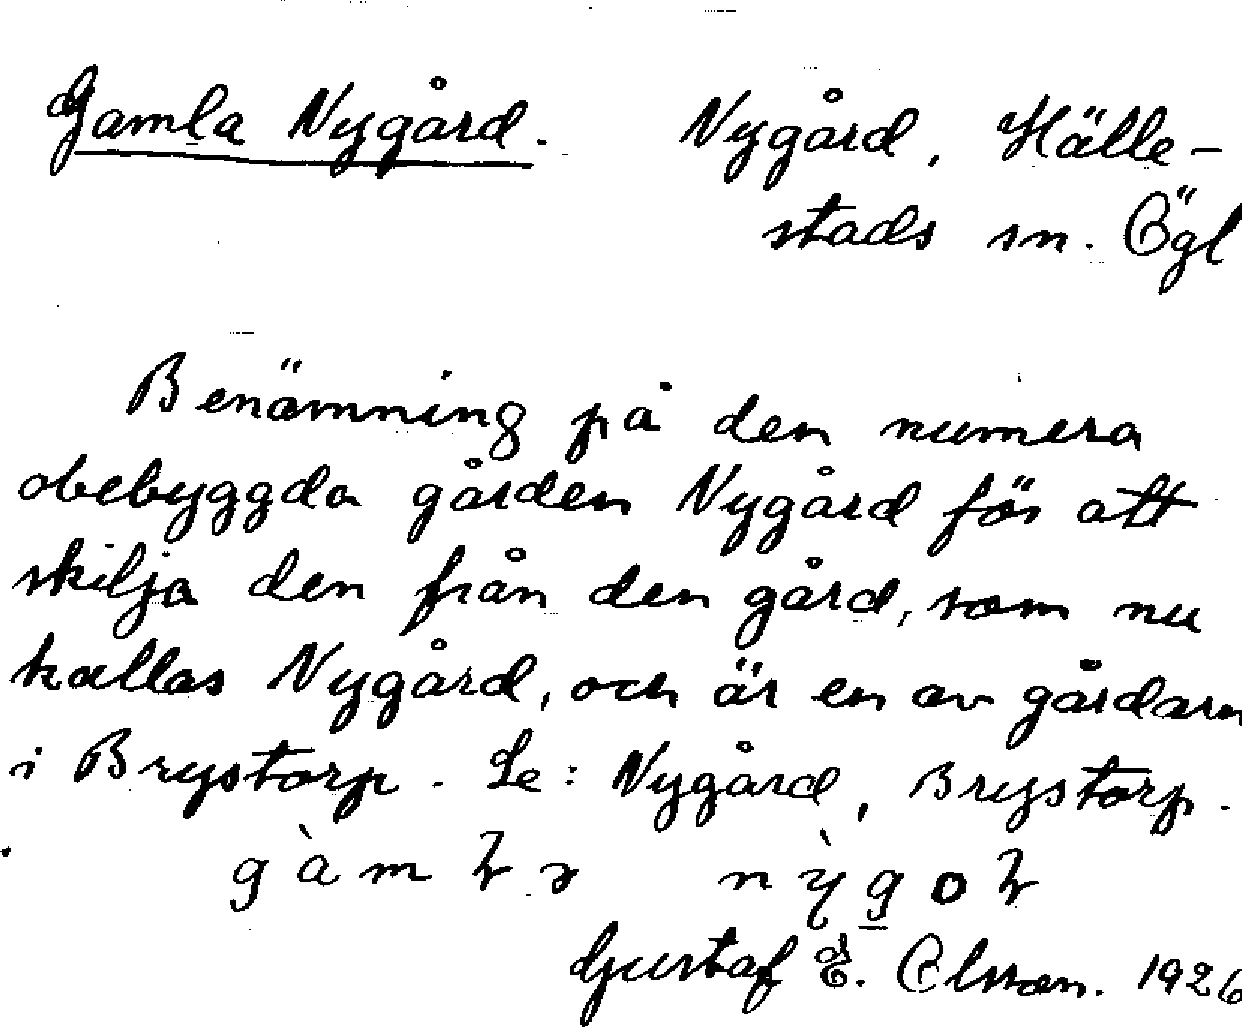 Gamla Nygård. Nygård, Hälle-
stads sn. Ögl
Benämning på den numera
obebyggda gården Nygård för att
skilja den från den gård, som nu
kallas Nygård, och är en av gårdarn
i Brystorp. Se: Nygård, Brystorp.
Gustaf E. Olsson. 1926